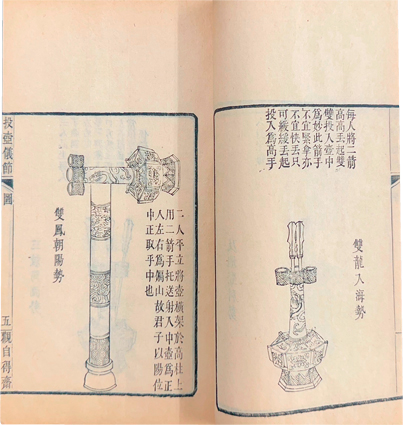 雙龍入海勢
每人將二箭
高高丟起雙
雙投入壺中
為妙此箭手
不宜緊拿亦
不宜快丟只
可緩緩丟起
投入為高手
二人平立將壺橫架於高柱上
用二箭手托送射入中壺為正
入左右為偏出故君子以陽位
中正取乎中也
雙鳳朝陽勢
投壺儀節
圖
五
觀自得齋